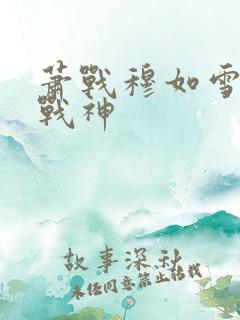 蕭戰穆如雪
戰神
故事深秋
未经同意禁止搭载